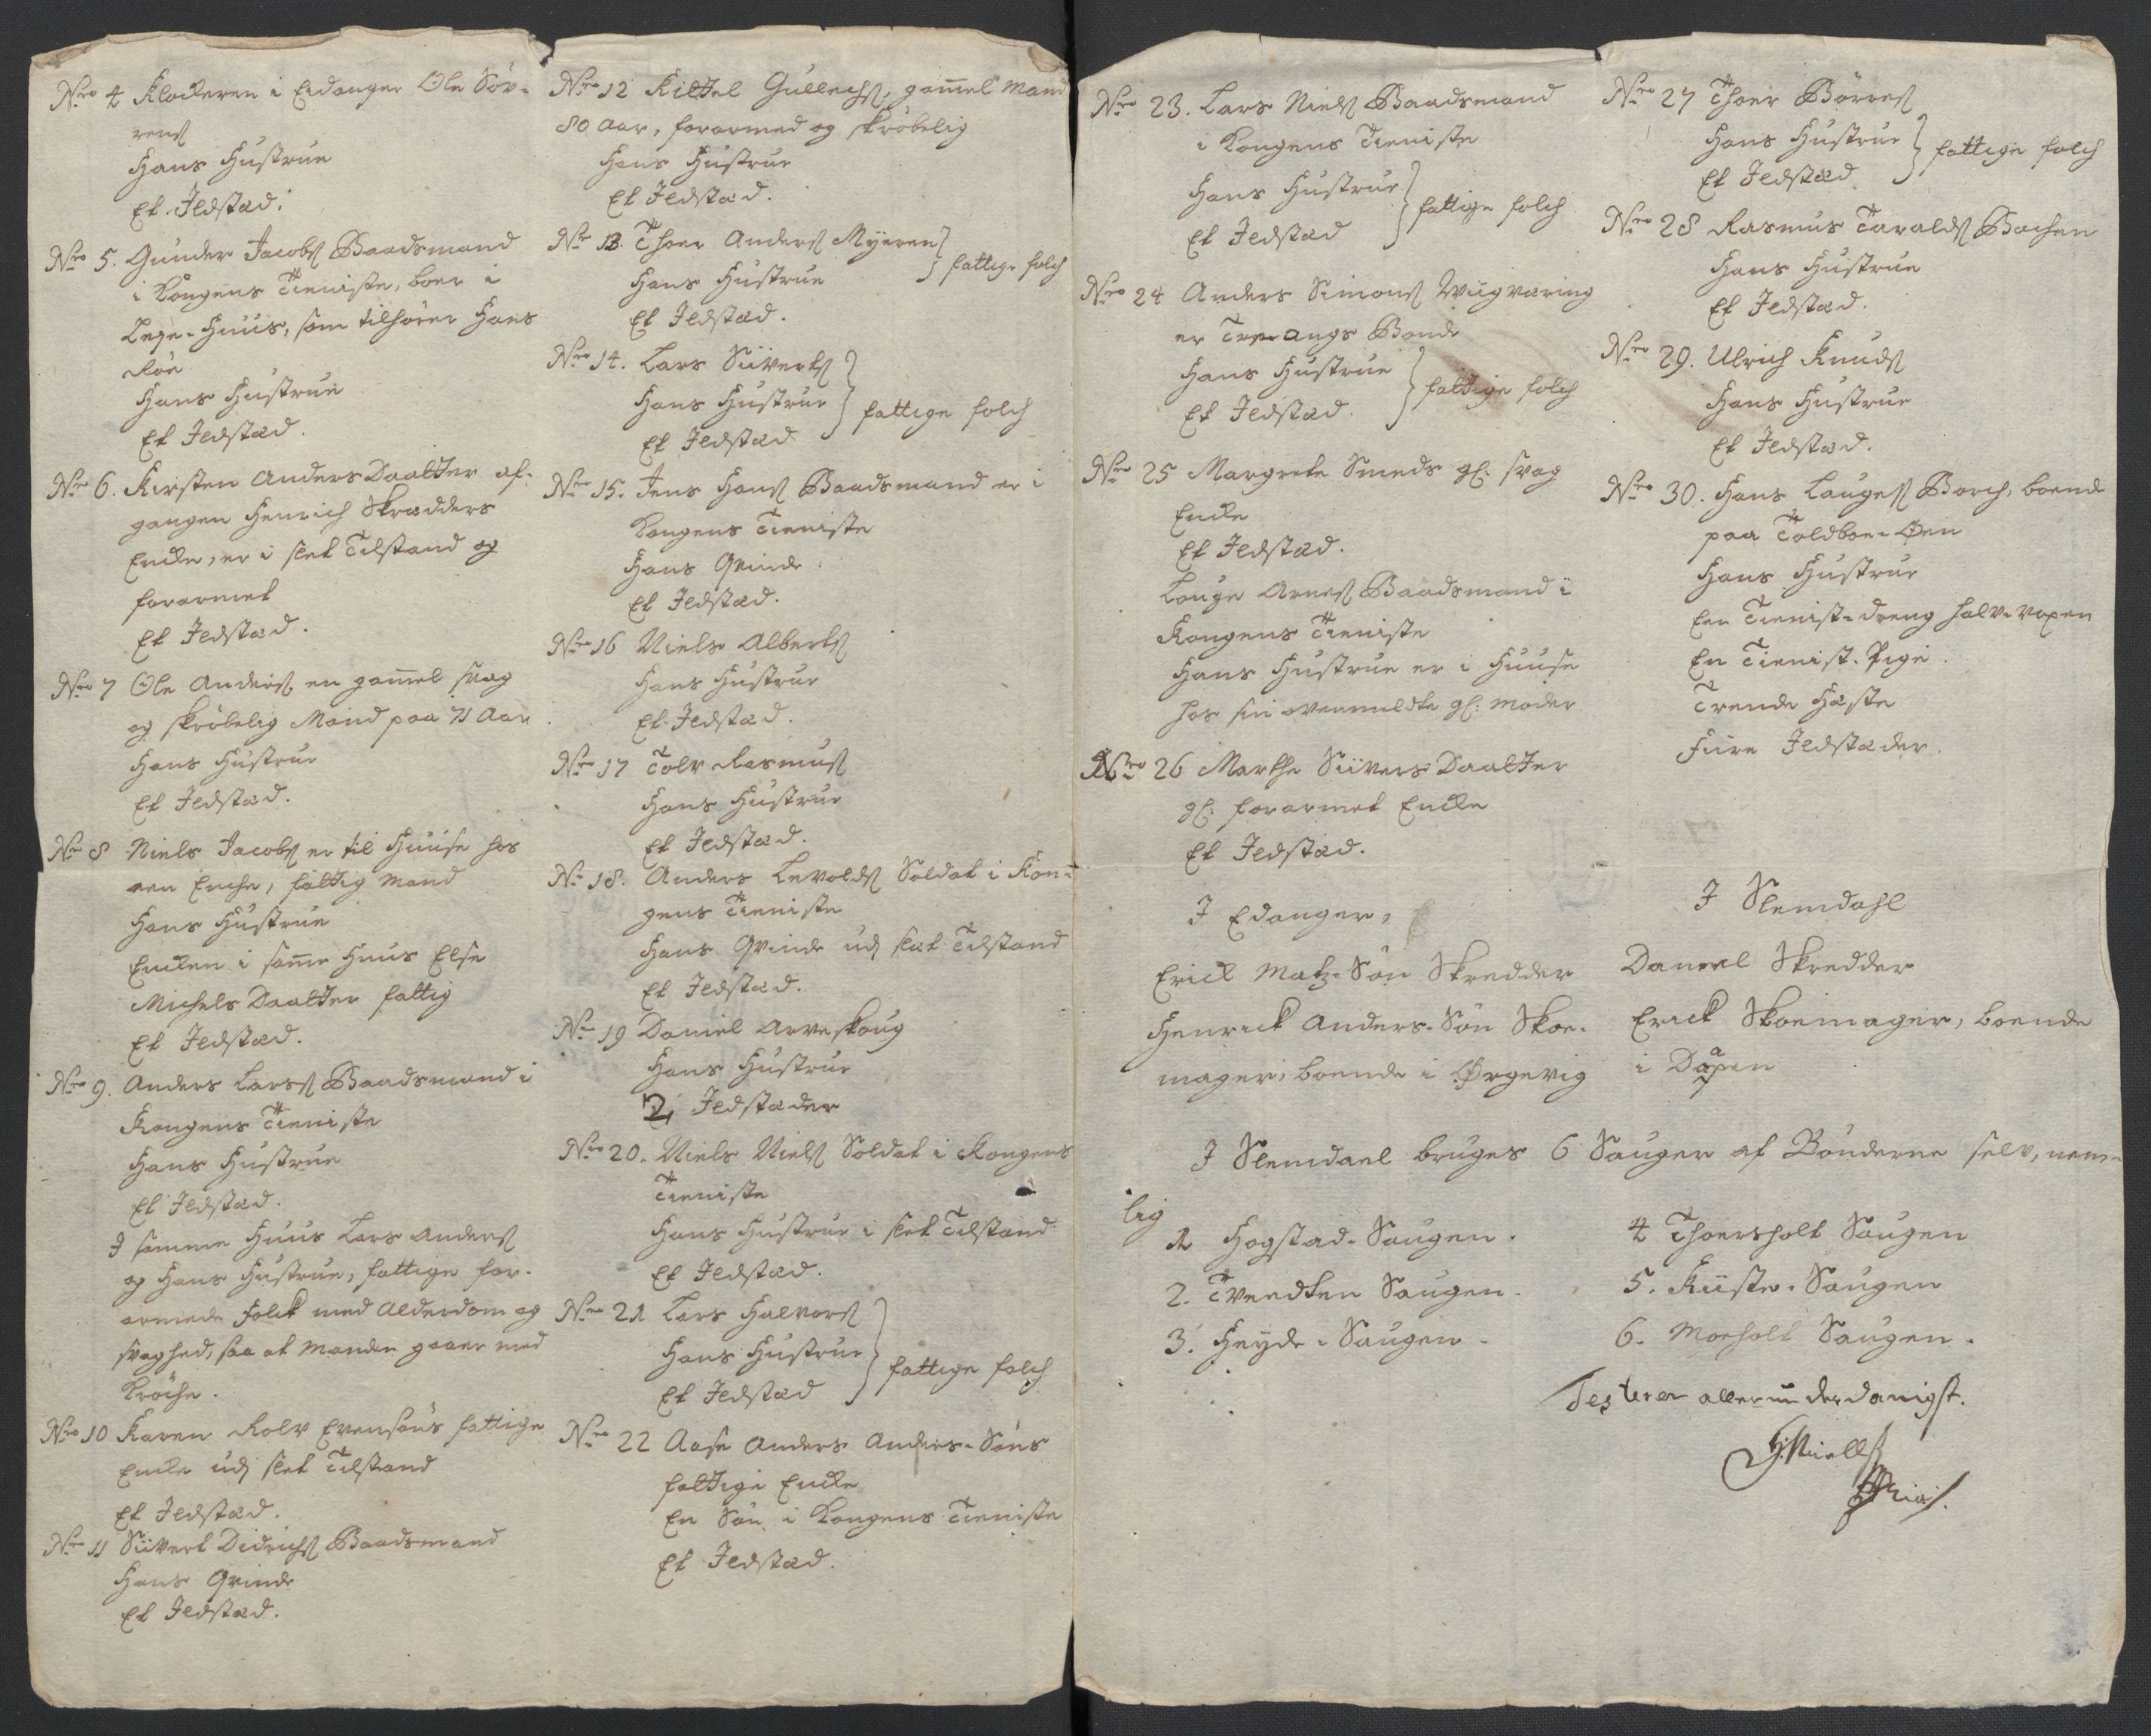 Nro 4 Klockeren i Eidanger Ole Söv-
rens
Hans Hustrue
Et Ildstæd.
Nro 5. Gunder Jacobs Baadsmand
i Kongens Tieniste, boer i
Leye-Huus, som tilhörer Hans
Röe
Hans Hustrue
Et Ildstæd.
Nro 6. Kirsten Anders Daatter af-
gangen Henrich Skrædders
Encke, er i slet Tilstand og
forarmet
Et Ildstæd.
Nro 7 Ole Anders. en gammel svag
og skröbelig Mand paa 71 Aar
Hans Hustrue
Et Ildstæd.
Nro 8 Niels Jacobs er til Huuse hos
een Enche, fattig Mand
Hans Hustrue
Encken i samme Huus Else
Michels Daatter fattig
Et Ildstæd.
Nro 9. Anders Larss Baadsmand i
Kongens Tieniste
Hans Hustrue
Et Ildstæd.
I samme Huus Lars Anders
og Hans Hustrue, fattige for-
armede Folck med Alderdom og
svaghed, saa at Manden gaaer med
Kröche.
Nro 10 Karen Rolv Evensöns fattige
Encke udj slet Tilstand
Et Ildstæd.
Nro 11 Siivert Didrichs Baadsmand
Hans Qvinde
Et Ildstæd.
Nro 12 Kittel Gullechs, gammel Mand
80 Aar, forarmed og skröbelig
Hans Hustrue
Et Ildstæd.
Nro 13. Thoer Anders Myeren
Hans Hustrue } fattige folch
Et Ildstæd.
Nro 14. Lars Siiverts
Hans Hustrue } fattige folch
Et Ildstæd
Nro 15. Jens Hans Baadsmand er i
Kongens Tieniste
Hans Qvinde
Et Ildstæd.
Nro 16 Niels Alberts
Hans Hustrue
Et Ildstæd.
Nro 17 Tolv Rasmus
Hans Hustrue
Et Ildstæd.
Nro 18. Anders Levolds Soldat i Kon-
gens Tieniste
Hans Qvinde udj slæt Tilstand
Et Ildstæd.
Nro 19 Daniel Arveskoug
Hans Hustrue
2 Ildstæder
Nro 20. Niels Niels Soldat i Kongens
Tieniste
Hans Hustrue i slet Tilstand
Et Ildstæd.
Nro 21 Lars Halvors
Hans Hustrue } fattige folch
Et Ildstæd
Nro 22 Aase Anders Anders-Söns
fattige Encke
En Sön i Kongens Tieniste
Et Ildstæd.
Nro 23. Lars Niels Baadsmand
i Kongens Tieniste
Hans Hustrue } fattige folch
Et Ildstæd
Nro 24 Anders Simons
er Bonde
Hans Hustrue } fattige folch
Et Ildstæd.
Nro 25 Margrete Smeds gl: svag
Encke
Et Ildstæd.
Lauge Arnes Baadsmand i
Kongens Tieniste
Hans Hustrue er i Huuse
hos sin ovenmeldte gl: Moder
Nro 26 Marthe Siivers Daatter
gl: forarmet Encke
Et Ildstæd.
I Edanger,
Erick Matz-Sön Skredder
Henrick Anders-Sön Skoe-
mager, boende i Ørgevig
Nro 27 Thoer Börres
Hans Hustrue } fattige folch
Et Ildstæd
Nro 28 Rasmus Taralds Bachen
Hans Hustrue
Et Ildstæd.
Nro 29. Ulrich Knuds
Hans Hustrue
Et Ildstæd.
Nro 30. Hans Lauges Borch, boende
paa Toldboe-Øen
Hans Hustrue
Een Tienist-dreng halv-voxen
En Tienist-Pige.
Trende Hæste
Fiire Ildstæder.
I Slemdahl
Daniel Skredder
Erick Skoemager, boende
i
I Slemdael bruges 6 Sauger af Bönderne selv, nem-
lig
1 Hogstad-Saugen.
2. Tveedten Saugen.
3. Heyde-Saugen.
4 Thoersholt Saugen
5. Kiiste-Saugen
6. Moeholt Saugen.
Testerer allerunderdanigst.